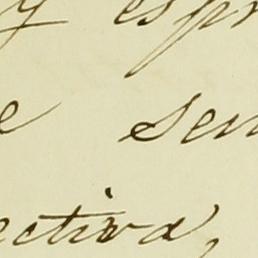 y espr
e sen
ectiva,